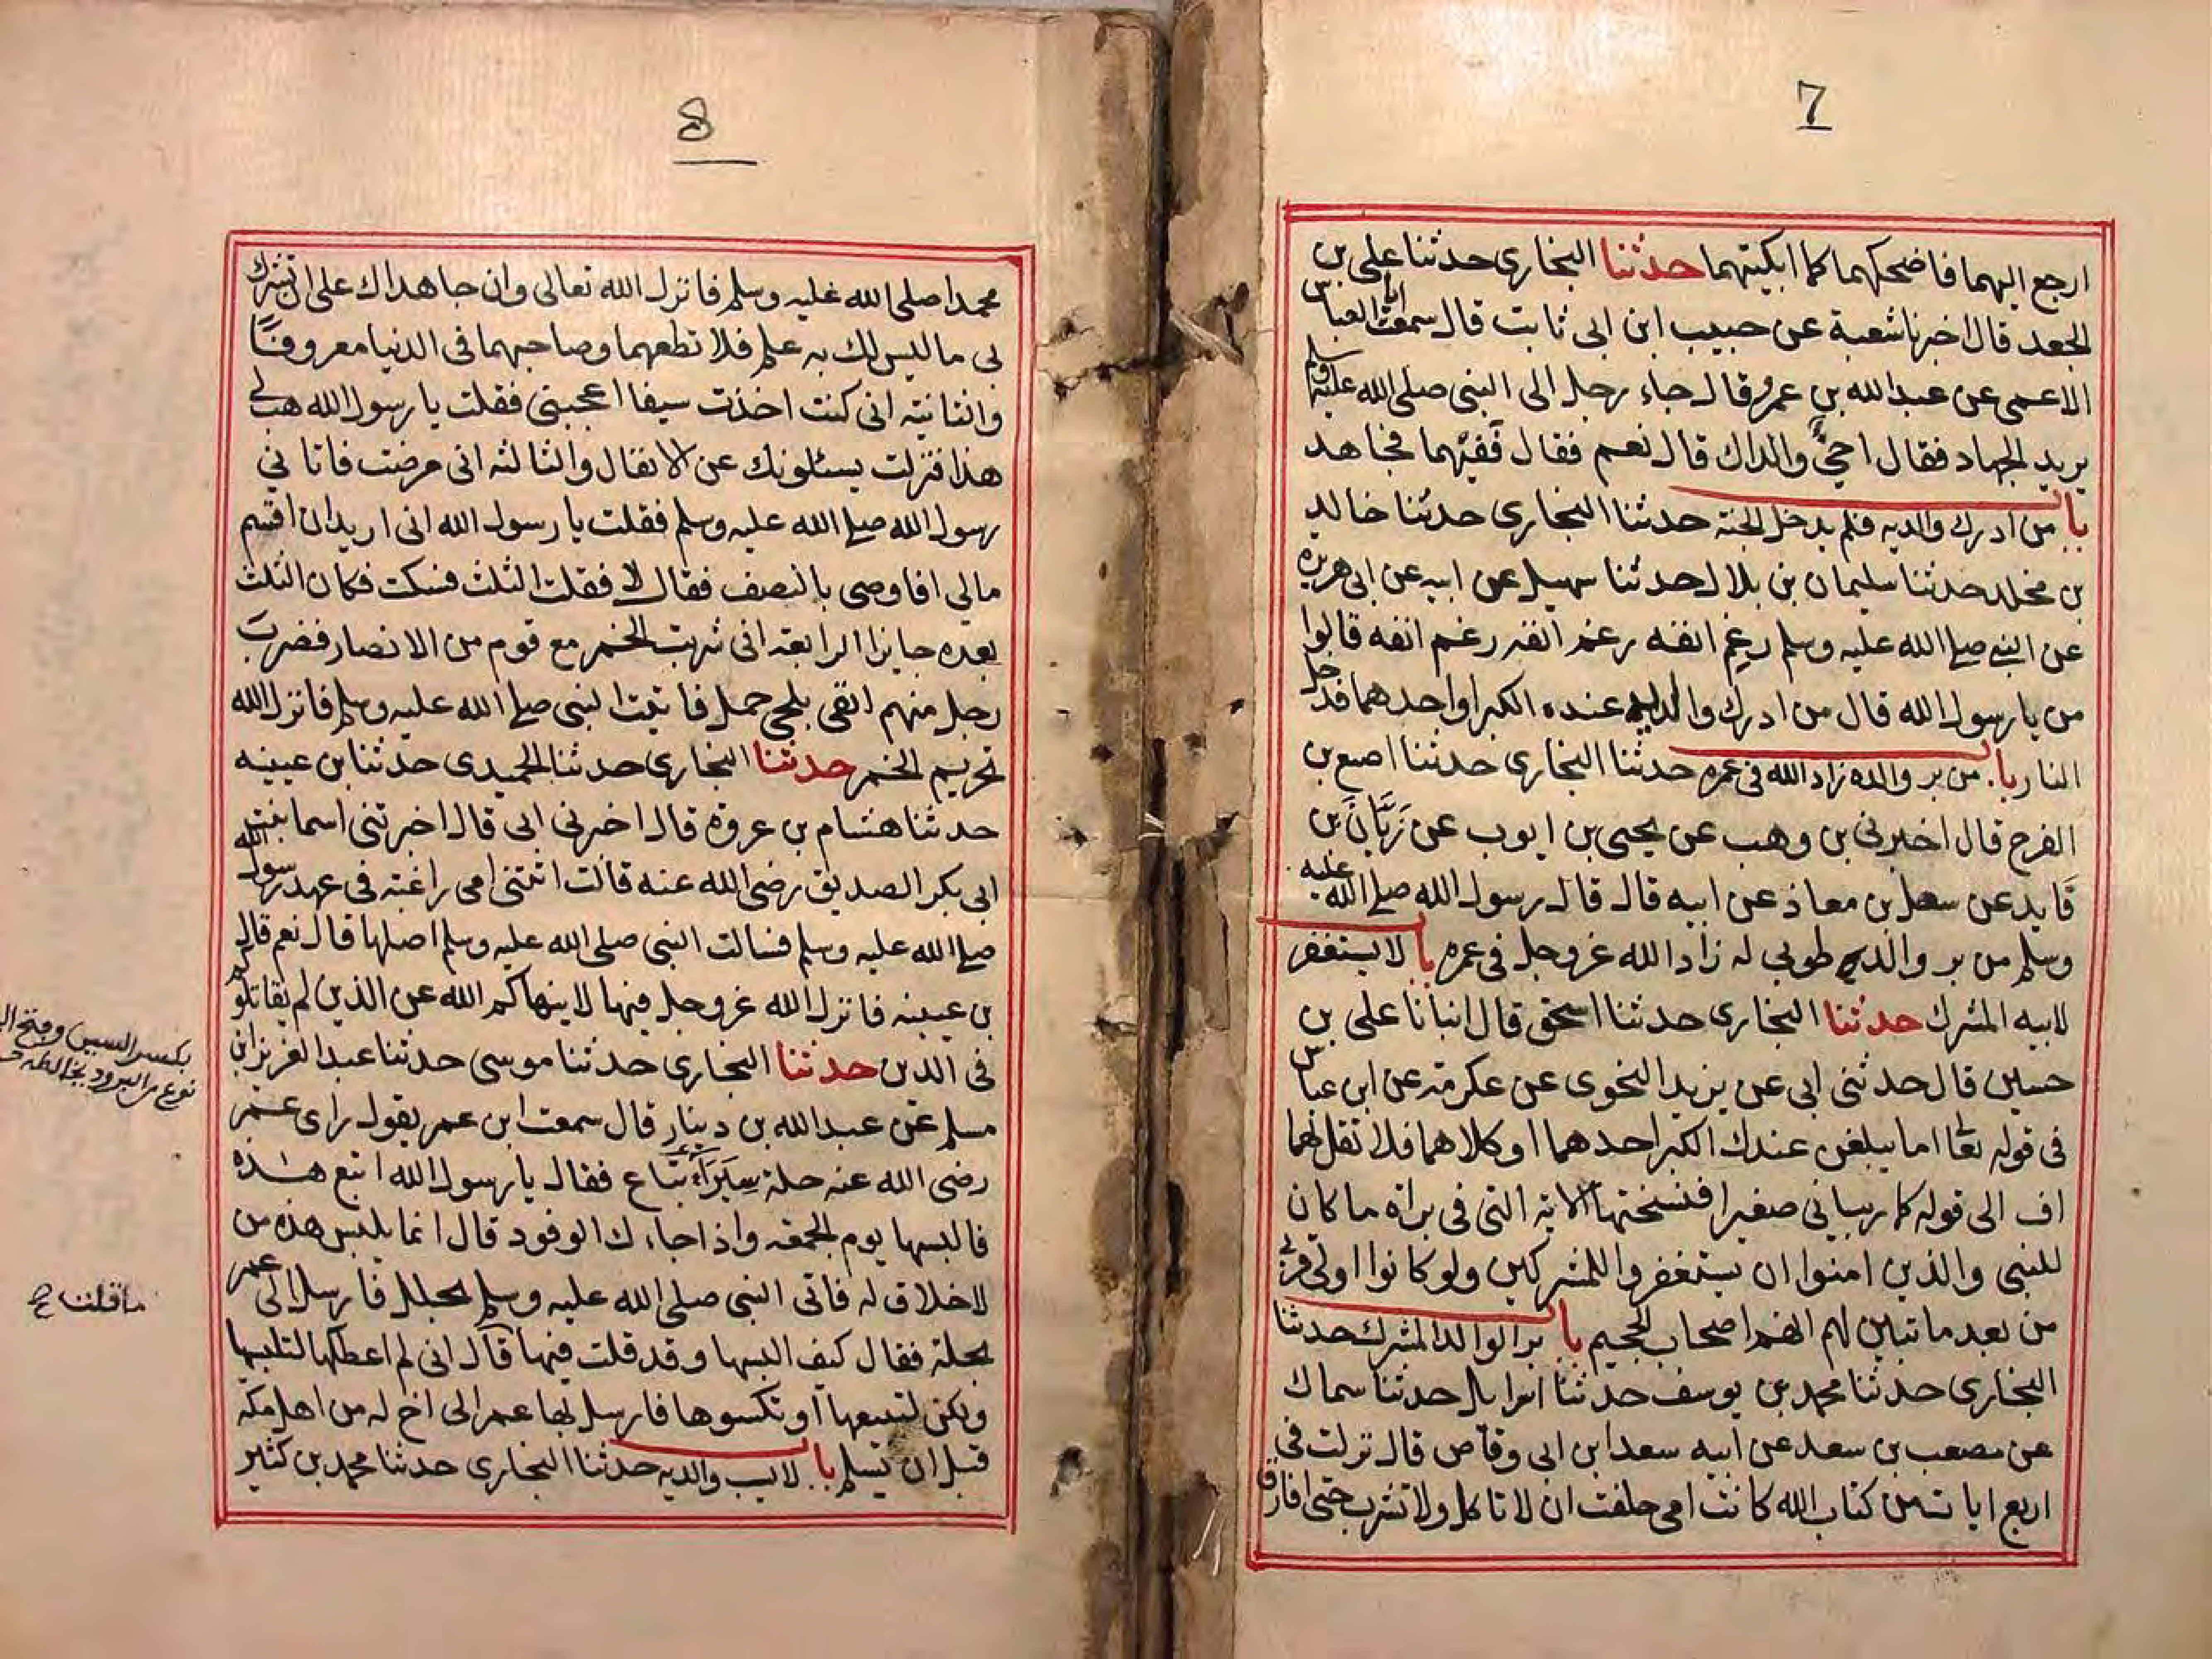 7
ارجع اليهما فاضحكهما كما ابكيتهما حدثنا البخارى حدثنا على بن
الجعد قال اخبرنا شعبة عن حبيب ابن ابى ثابت قال سمعت ابا العباس
الاعمى عن عبد الله بن عمرو قال جاء رجل الى النبى صلى الله عليه وسلم
يريد الجهاد فقال احىٌّ والداك قال نعم فقال ففيهما فجاهد
باب من ادرك والديه فلم يدخل الجنة حدثنا البخارى حدثنا خالد
بن مخلد حدثنا سليمان بن بلال حدثنا سهيل عن ابيه عن ابى هريرة
عن النبى صلى الله عليه وسلم رغم انفه رغم انفه رغم انفه قالوا
من يا رسول الله قال من ادرك والديه عنده الكبر او احدهما فدخل
النار باب من بر والده زاد الله فى عمره حدثنا البخارى حدثنا اصبع بن
الفرج قال اخبرنى بن وهب عن يحيى بن ايوب عن زَبَّانَ بن
فَايد عن سهل بن معاذ عن ابيه قال قال رسول الله صلى الله عليه
وسلم من بر والديه طوبى له زاد الله عز وجل فى عمره باب لا يستغفر
لابيه المشرك حدثنا البخارى حدثنا اسحق قال انبانا على بن
حسين قال حدثنى ابى عن يزيد النحوى عن عكرمة عن ابن عباس
فى قوله تعا اما يبلغن عندك الكبر احدهما او كلاهما فلا تقل لهما
اف الى قوله كما ربيانى صغيرا فنسختها الاية التى فى براة ما كان
للنبى والذين امنوا ان يستغفروا للمشركين ولو كانوا اولى قربى
من بعد ما تبين لهم انهم اصحاب الجحيم باب بر الوالد المشرك حدثنا
البخارى حدثنا محمد بن يوسف حدثنا اسرايل حدثنا سماك
عن مصعب بن سعد عن ابيه سعد ابن ابى وقاص قال نزلت فى
اربع ايات من كتاب الله كانت امى حلفت ان لا تاكل ولا تشرب حتى افارق
8
محمدا صلى الله عليه وسلم فانزل الله تعالى وان جاهداك على ان تشرك
بى ما ليس لك به علم فلا تطعهما وصاحبهما فى الدنيا معروفًا
والثانية انى كنت اخذت سيفا اعجبنى فقلت يا رسول الله هب لى
هذا فنزلت يسئلونك عن الانفال والثالثة انى مرضت فاتانى
رسول الله صلى الله عليه وسلم فقلت يا رسول الله انى اريد ان اقسم
مالى افاوصى بالنصف فقال لا فقلت الثلث فسكت فكان الثلث
بعده جايزا الرابعة انى شربت الخمر مع قوم من الانصار فضرب
رجل منهم انفى بلحى جمل فاتيت النبى صلى الله عليه وسلم فانزل الله
تحريم الخمر حدثنا البخارى حدثنا الحميدى حدثنا بن عيينه
حدثنا هشام بن عروة قال اخبرنى ابى قال اخبرتنى اسما بنت
ابى بكر الصديق رضى الله عنه قالت اتتنى امى راغبة فى عهد رسول الله
صلى الله عليه وسلم فسالت النبى صلى الله عليه وسلم اصلها قال نعم قال
بن عيينه فانزل الله عز وجل فيها لا ينهاكم الله عن الذين لم يقاتلوكم
فى الدين حدثنا البخارى حدثنا موسى حدثنا عبد العزيز ابن
مسلم عن عبد الله بن دينار قال سمعت ابن عمر يقول راى عمر
رضى الله عنه حلة سِيَرَاءَ تباع فقال يا رسول الله ابتع هذه
فالبسها يوم الجمعة واذا جاءك الوفود قال انما يلبس هذه من
لا خلاق له فاتى النبى صلى الله عليه وسلم بحلل فارسل الى عمر
بحلة فقال كيف البسها وقد قلت فيها قال انى لم اعطكها لتلبسها
ولكن لتبيعها او تكسوها فارسل بها عمر الى اخ له من اهل مكه
قبل ان يسلم باب لا يسب والديه حدثنا البخارى حدثنا محمد بن كثير
بكسر السين وفتح
نوع من البرود يخالطه
ما قلت